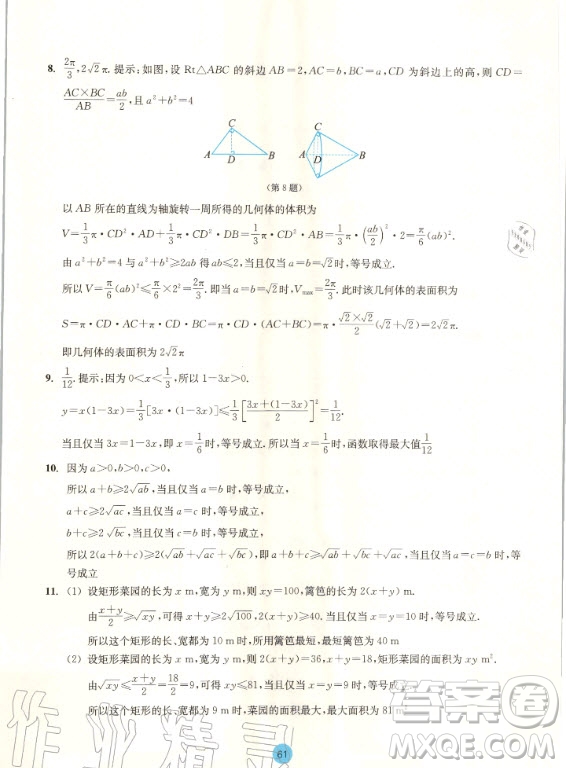 8. 2π/3, 2√2π. 提示:如图,设 Rt△ABC 的斜边 AB=2, AC=b, BC=a, CD 为斜边上的高,则 CD=
AC×BC/AB=ab/2,且 a²+b²=4
C
A D B
C
A D B
(第 8 题)
以 AB 所在的直线为轴旋转一周所得的几何体的体积为
V=1/3π·CD²·AD+1/3π·CD²·DB=1/3π·CD²·AB=1/3π·(ab/2)²·2=π/6(ab)².
由 a²+b²=4 与 a²+b²≥2ab 得 ab≤2,当且仅当 a=b=√2时,等号成立.
所以 V=π/6(ab)²≤π/6×2²=2π/3. 即当 a=b=√2时,Vmax=2π/3. 此时该几何体的表面积为
S=π·CD·AC+π·CD·BC=π·CD·(AC+BC)=π·√2×√2/2(√2+√2)=2√2π.
即几何体的表面积为 2√2π
9. 1/12. 提示:因为 0<x<1/3,所以 1-3x>0.
y=x(1-3x)=1/3[3x·(1-3x)]≤1/3[3x+(1-3x)/2]²=1/12.
当且仅当 3x=1-3x,即 x=1/6时,等号成立.所以当 x=1/6时,函数取得最大值1/12
10. 因为 a>0,b>0,c>0,
所以 a+b≥2√ab,当且仅当 a=b 时,等号成立,
a+c≥2√ac,当且仅当 a=c 时,等号成立,
b+c≥2√bc,当且仅当 b=c 时,等号成立,
所以 2(a+b+c)≥2(√ab+√ac+√bc),即 a+b+c≥√ab+√ac+√bc,当且仅当 a=b=c 时,等
号成立
11. (1) 设矩形菜园的长为 x m,宽为 y m,则 xy=100,篱笆的长为 2(x+y) m.
由x+y/2≥√xy,可得 x+y≥2√100,2(x+y)≥40,当且仅当 x=y=10 时,等号成立.
所以这个矩形的长、宽都为 10 m时,所用篱笆最短,最短篱笆为 40 m
(2) 设矩形菜园的长为 x m,宽为 y m,则 2(x+y)=36,x+y=18,矩形菜园的面积为 xy m².
由√xy≤x+y/2=18/2=9,可得 xy≤81,当且仅当 x=y=9 时,等号成立
所以这个矩形的长、宽都为 9 m时,菜园的面积最大,最大面积为 81
61
作业精灵
答案圈
MXQE.COM